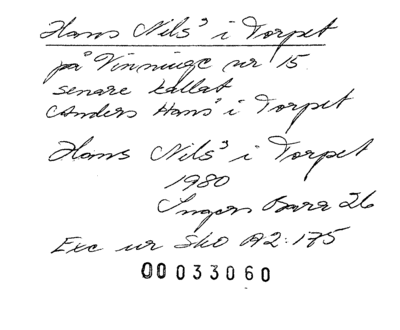 Hans Nils³ i Torpet
på Vinninge nr 15
senare kallat
Anders Hans³ i Torpet
Hans Nils³ i Torpet
1980
Ingers Barr 26
Exc ur Sko A2:175
00033060